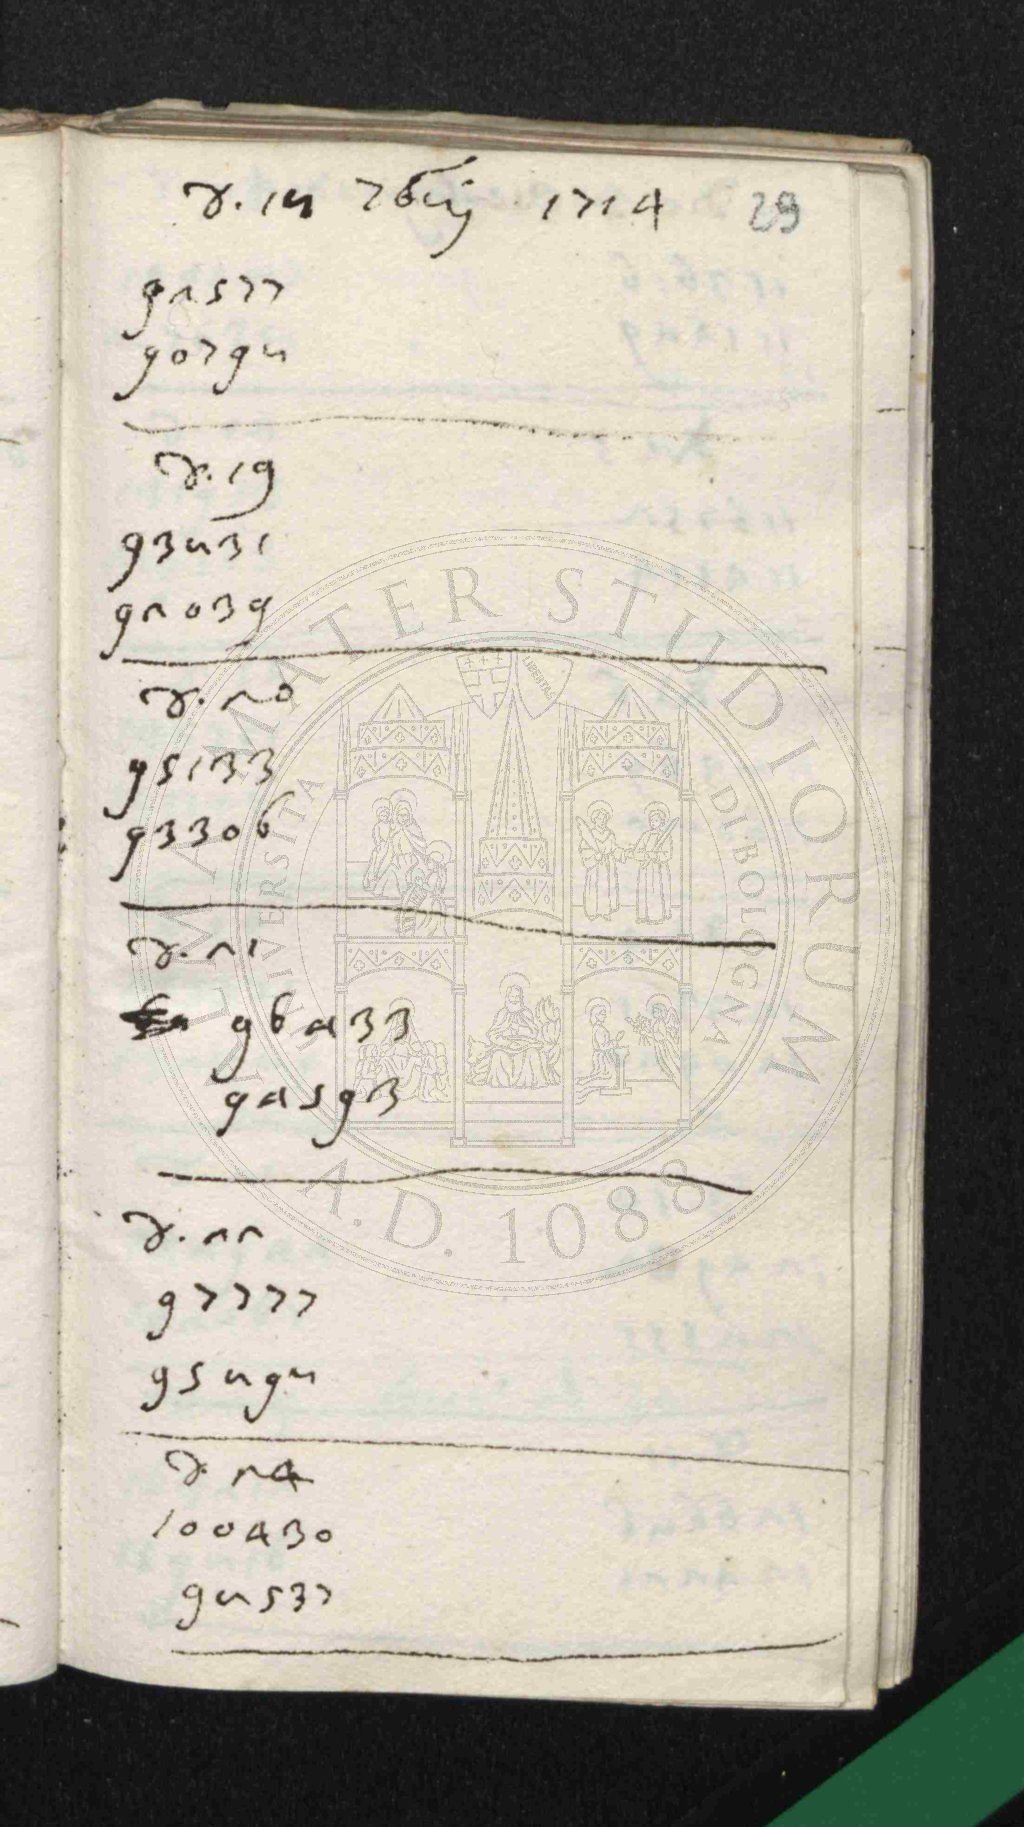 d. 18 7bris 1714 29
92577
90798
d. 19
93831
92039
d. 20
95133
93306
d. 21
96433
94593
d. 22
97777
95898
d. 24
100430
98537
ALMA MATER STUDIORUM
UNIVERSITA DI BOLOGNA
LIBERTAS
A.D. 1088